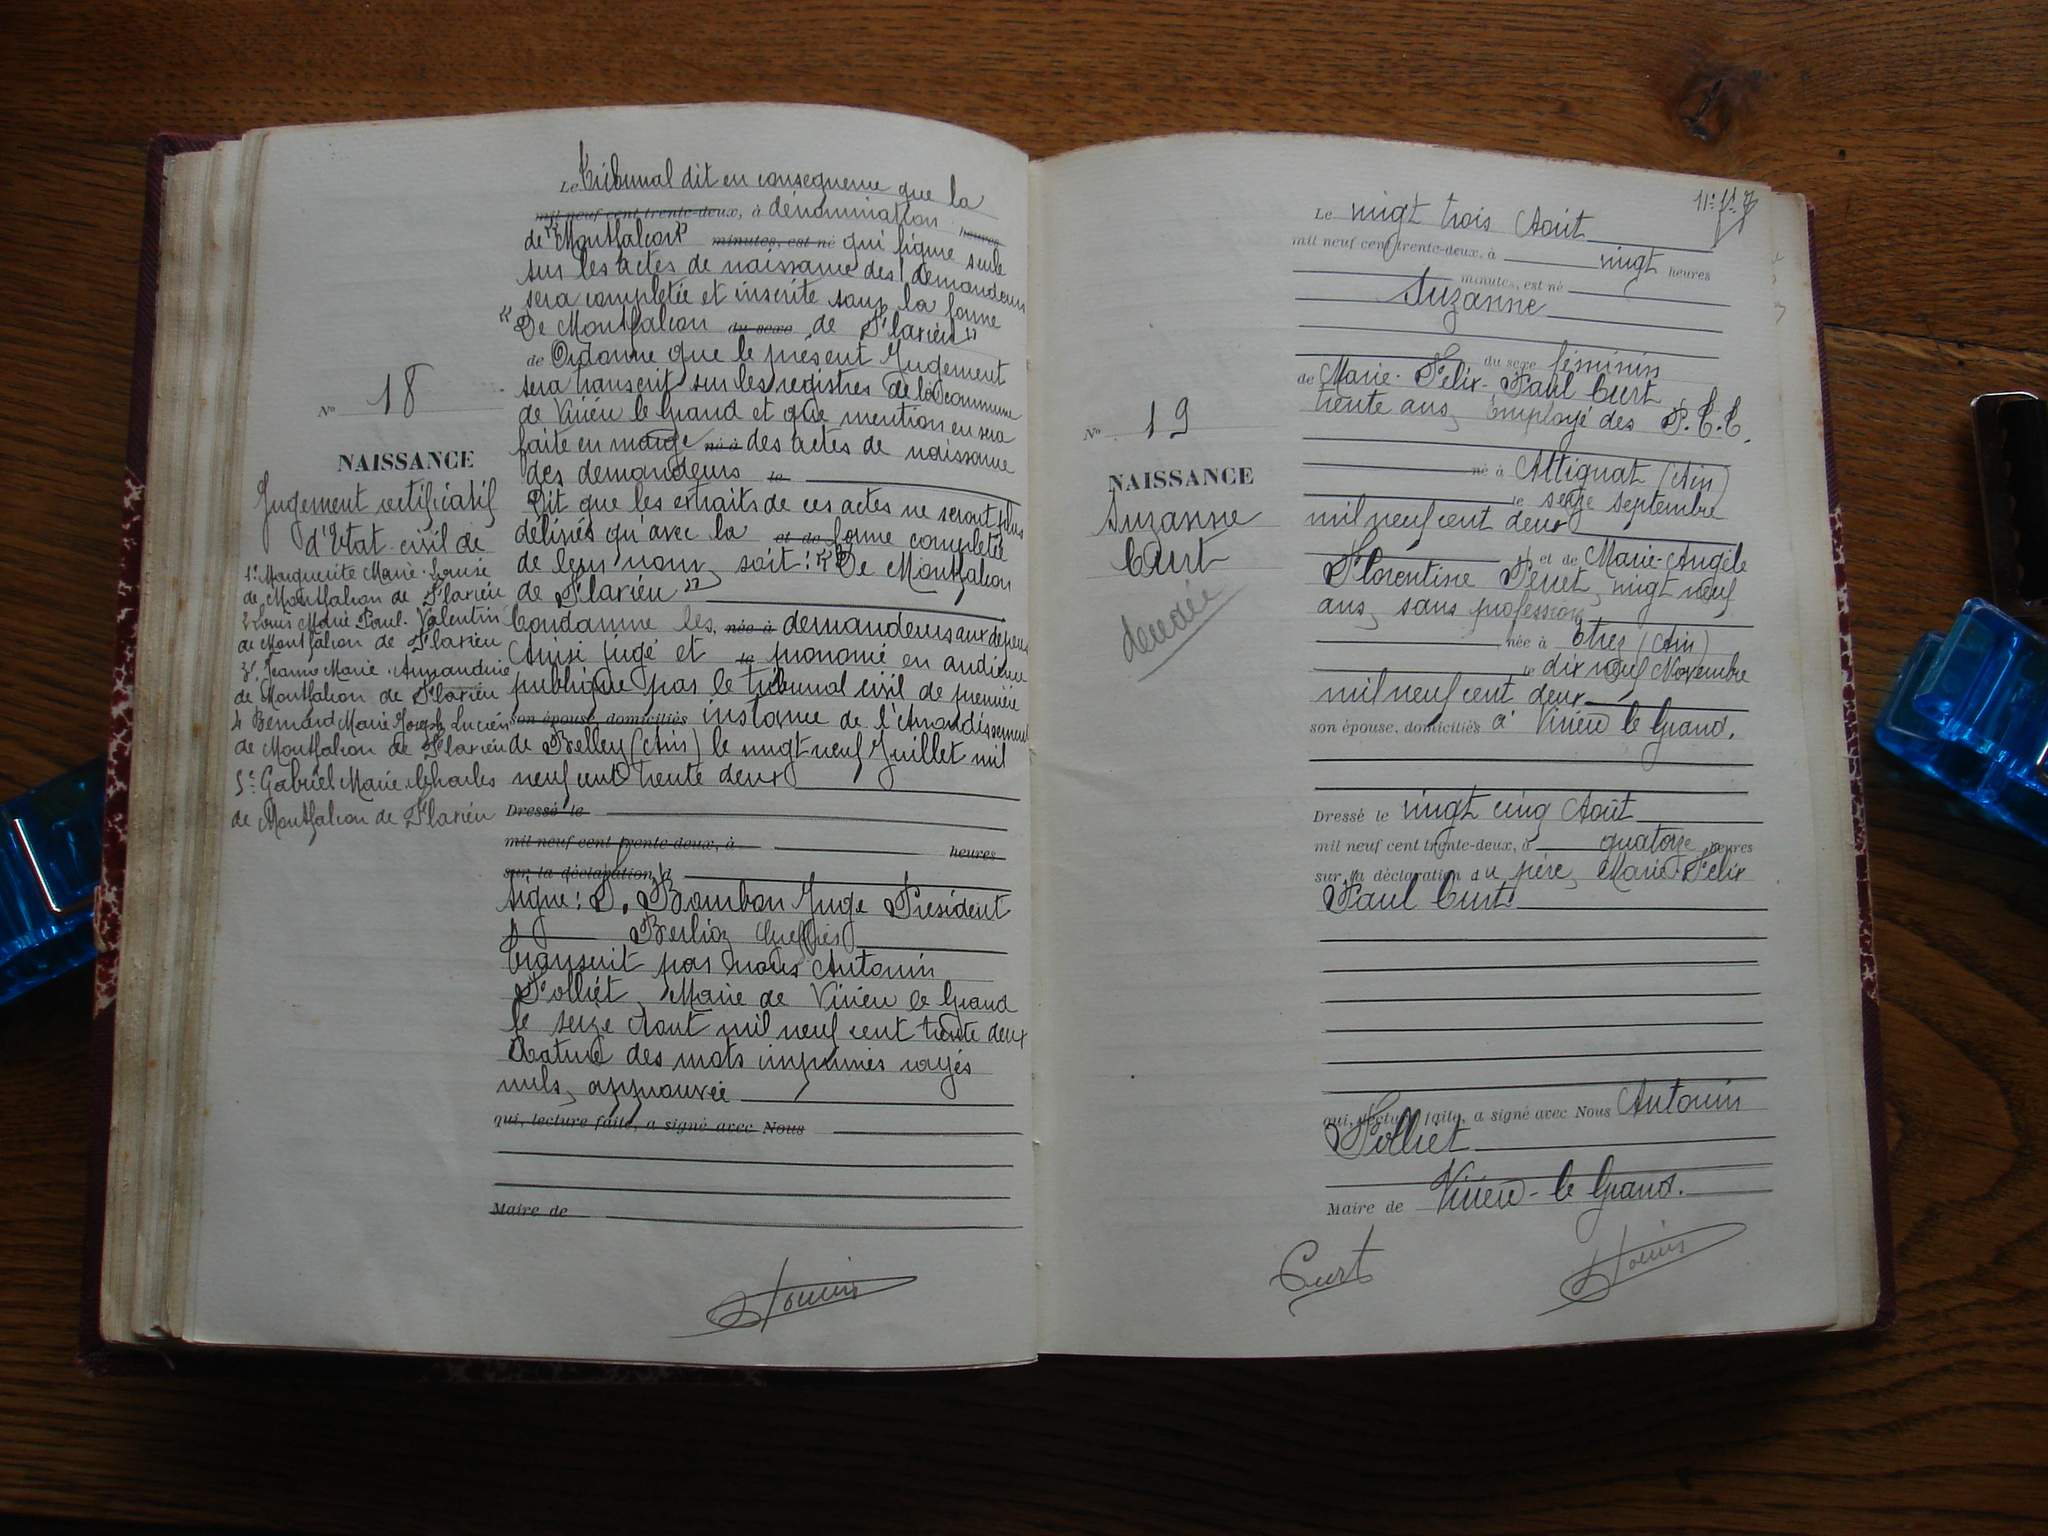 Le Tribunal dit en conséquence que la
mil neuf cent trente-deux, à dénomination heures
de "Montfalcon" minutes, est né qui figure seule
sur les actes de naissance des demandeurs
sera complétée et inscrite sous la forme
"De Montfalcon du sexe de Flaxieu"
de Ordonne que le présent Jugement
sera transcrit sur les registres de la commune
de Virieu le Grand et que mention en sera
faite en marge né à des actes de naissance
des demandeurs le
Dit que les extraits de ces actes ne seront plus
délivrés qu'avec la et de forme complétée
de leur nom, soit : "De Montfalcon
de Flaxieu"
Condamne les, née à demandeurs aux dépens
Ainsi jugé et le prononcé en audience
publique par le tribunal civil de première
son épouse, domiciliés instance de l'Arrondissement
de Belley (Ain) le vingt neuf Juillet mil
neuf cent trente deux
Dressé le
mil neuf cent trente-deux, à heures
sur la déclaration d
Signé : D. Bourbon Juge Président
Berlioz Greffier
Transcrit par Nous Antonin
Polliet, Maire de Virieu le Grand
le seize Août mil neuf cent trente deux
Rature des mots imprimés rayés
nuls, approuvée
qui, lecture faite, a signé avec Nous
Maire de
N° 18
NAISSANCE
Jugement rectificatif
d'Etat-civil de
1° Marguerite Marie-Louise
de Montfalcon de Flaxieu
2° Louis Marie Paul-Valentin
de Montfalcon de Flaxieu
3° Jeanne Marie-Amandine
de Montfalcon de Flaxieu
4 Bernard Marie Joseph Lucien
de Montfalcon de Flaxieu
5° Gabriel Marie Charles
de Montfalcon de Flaxieu
N° 19
NAISSANCE
Suzanne
Curt
décédée
Le vingt trois Août
mil neuf cent trente-deux, à vingt heures
minutes, est né
Suzanne
du sexe féminin
de Marie-Félix-Paul Curt
trente ans, employé des P.T.T.
né à Attignat (Ain)
le seize septembre
mil neuf cent deux
et de Marie-Angèle
Florentine Perret, vingt neuf
ans, sans profession
née à Etrez (Ain)
le dix neuf Novembre
mil neuf cent deux
son épouse, domiciliés à Virieu le Grand.
Dressé le vingt cinq Août
mil neuf cent trente-deux, à quatorze heures
sur la déclaration du père, Marie-Félix
Paul Curt
qui, lecture faite, a signé avec Nous Antonin
Polliet
Maire de Virieu-le Grand.
Curt